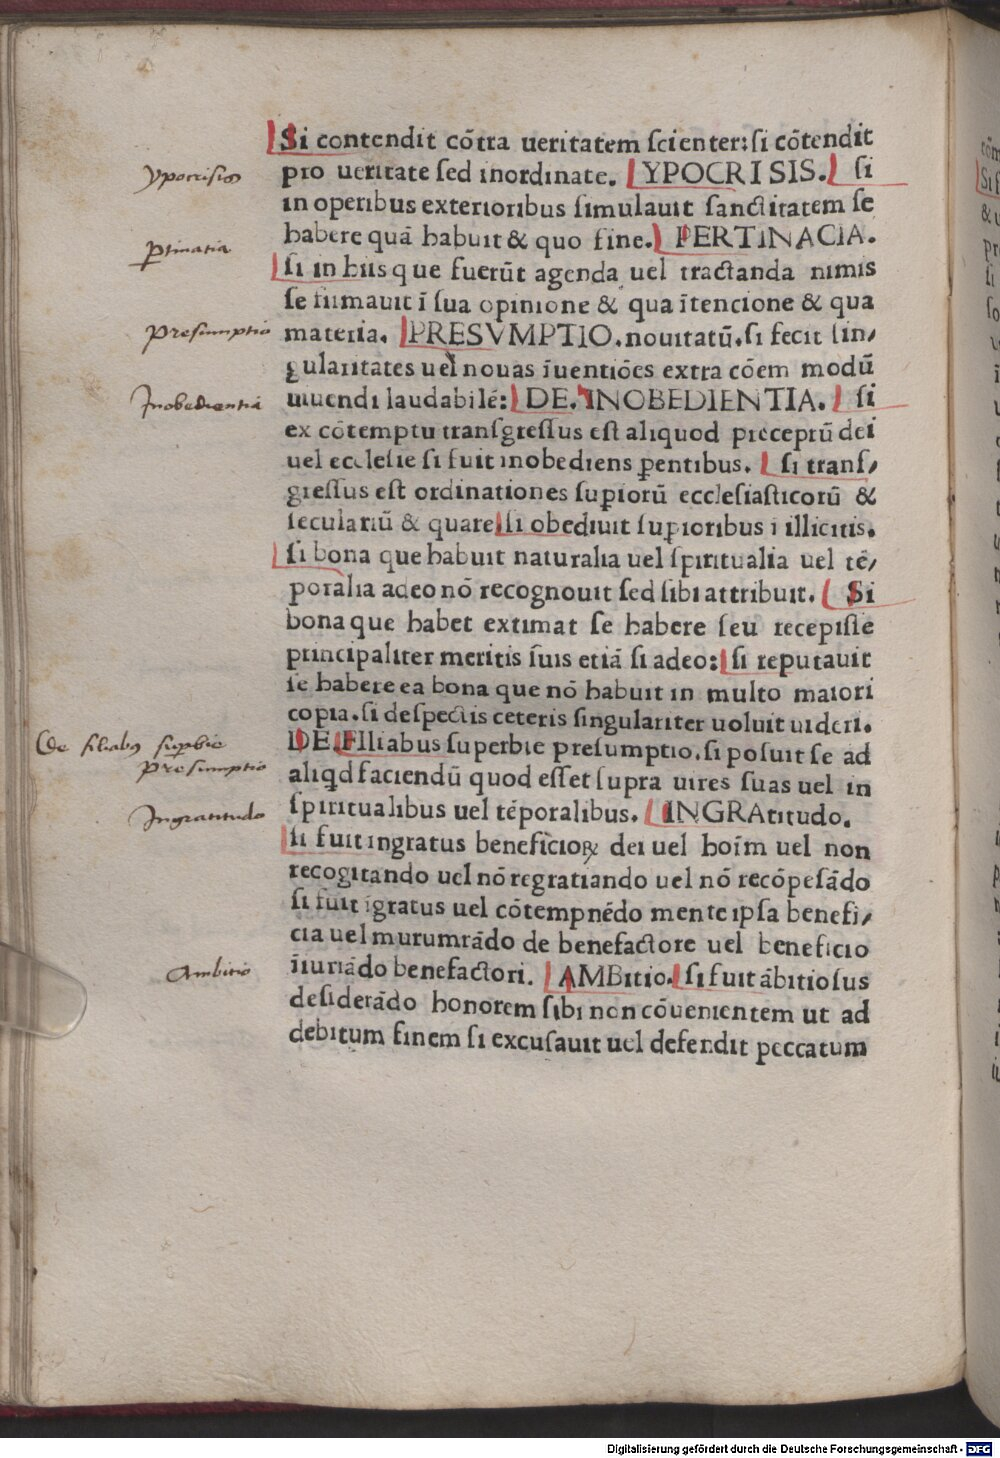 Si contendit cōtra ueritatem scienter: si cōtendit
pro ueritate sed inordinate. YPOCRISIS. si
in operibus exterioribus simulauit sanctitatem se
habere quā habuit & quo fine. PERTINACIA.
si in hiis que fuerūt agenda uel tractanda nimis
se firmauit ī sua opinione & qua ītencione & qua
materia. PRESVMPTIO. nouitatū. si fecit sin/
gularitates uel nouas īuentiōes extra cōem modū
uiuendi laudabilē: DE. INOBEDIENTIA. si
ex cōtemptu transgressus est aliquod preceptū dei
uel ecclesie si fuit inobediens ꝑentibus. si trans/
gressus est ordinationes suꝑiorū ecclesiasticorū &
seculariū & quare si obediuit suꝑioribus i illicitis.
si bona que habuit naturalia uel spiritualia uel tē/
poralia a deo nō recognouit sed sibi attribuit. Si
bona que habet extimat se habere seu recepisse
principaliter meritis suis etiā si a deo: si reputauit
se habere ea bona que nō habuit in multo maiori
copia. si despectis ceteris singulariter uoluit uideri.
DE FIliabus superbie presumptio. si posuit se ad
aliqd faciendū quod esset supra uires suas uel in
spiritualibus uel tēporalibus. INGRAtitudo.
si fuit ingratus beneficioꝝ dei uel hoīm uel non
recogitando uel nō regratiando uel nō recōpēsādo
si fuit īgratus uel cōtempnēdo mente ipsa benefi/
cia uel murumrādo de benefactore uel beneficio
īiuriādo benefactori. AMBitio. si fuit ābitiosus
desiderādo honorem sibi non cōuenientem ut ad
debitum finem si excusauit uel defendit peccatum
ypocrisis
ꝑtinatia
presumptio
Inobedientia
De filiabus suꝑbie
presumptio
Ingratitudo
Ambitio
Digitalisierung gefördert durch die Deutsche Forschungsgemeinschaft - DFG